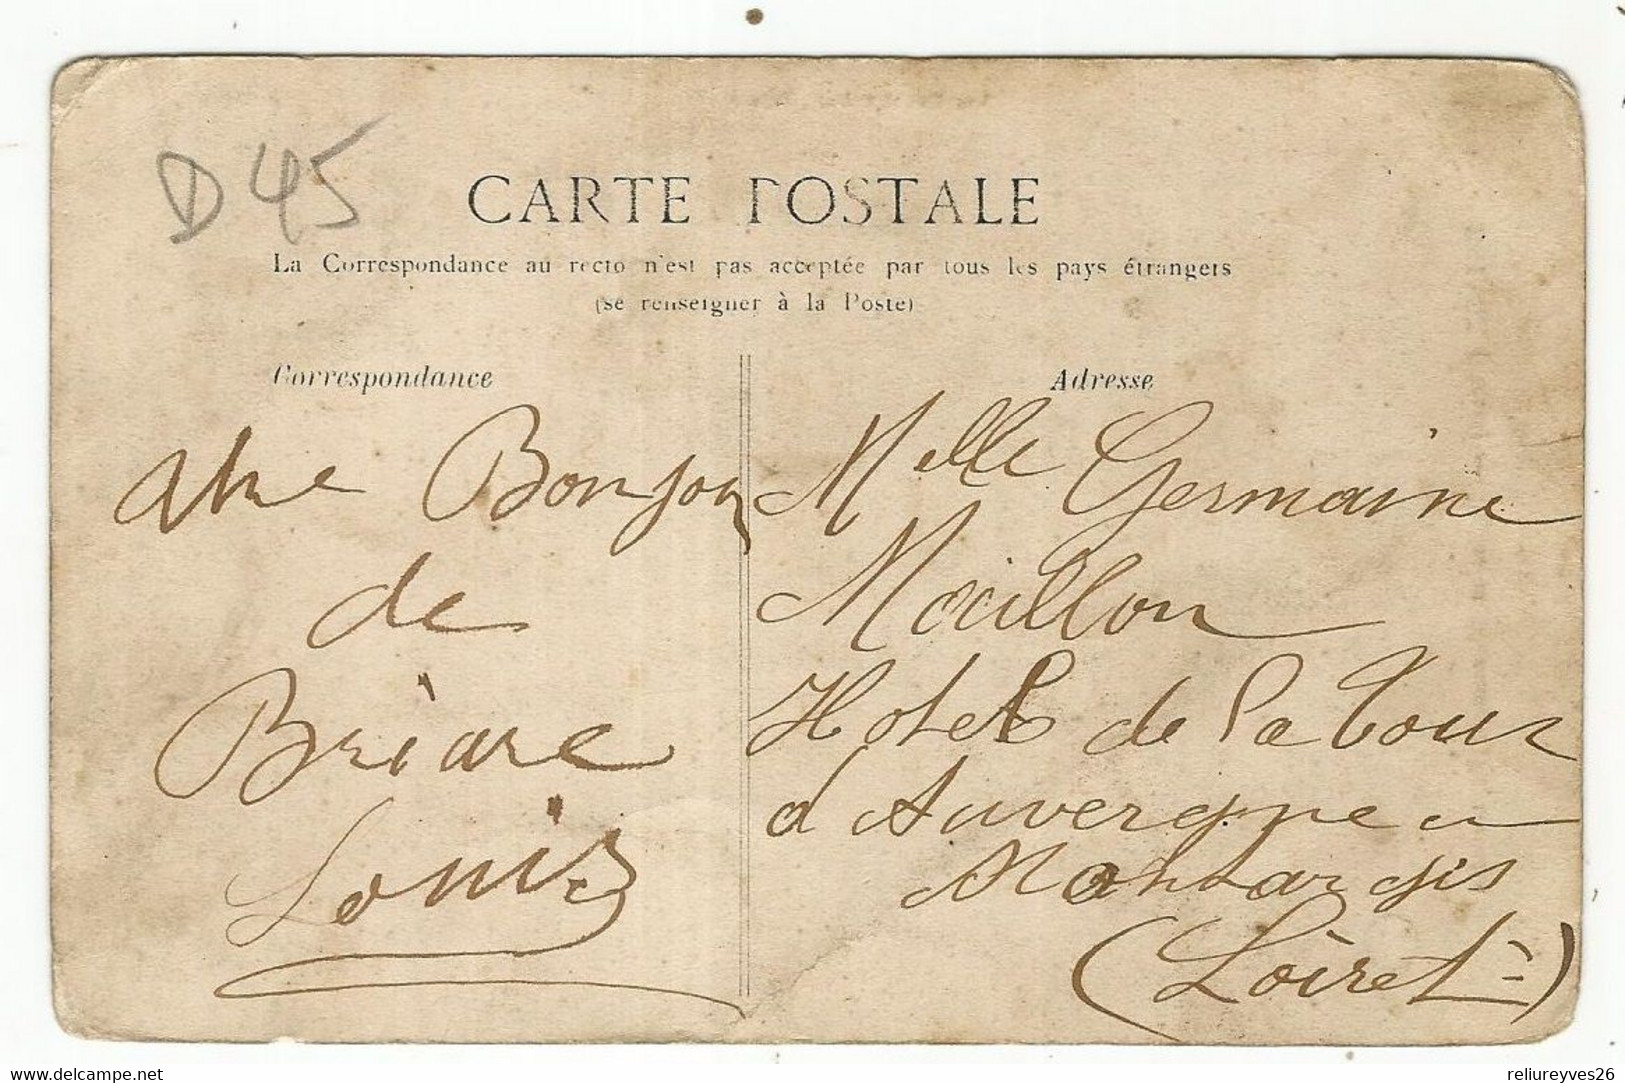 D45
CARTE POSTALE
La Correspondance au recto n'est pas acceptée par tous les pays étrangers
(se renseigner à la Poste)
Correspondance
Bonjour
de
Briare
Louis
Adresse
Melle Germaine
Mouillon
Hotel de la Tour
d'Auvergne
Montargis
(Loiret)
www.delcampe.net
reliureyves26